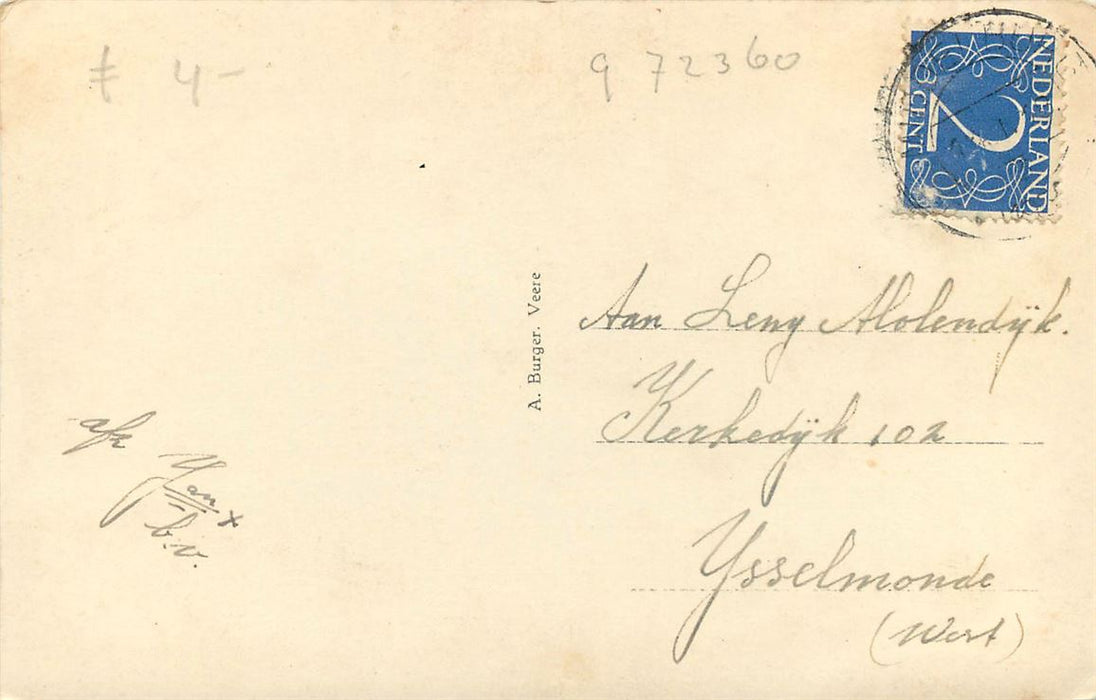 ƒ 4-
9 72360
NEDERLAND
2
CENT
A. Burger. Veere
Aan Leny Molendijk.
Kerkedijk 102
Ysselmonde
(West)
afz
Jan x
b.v.